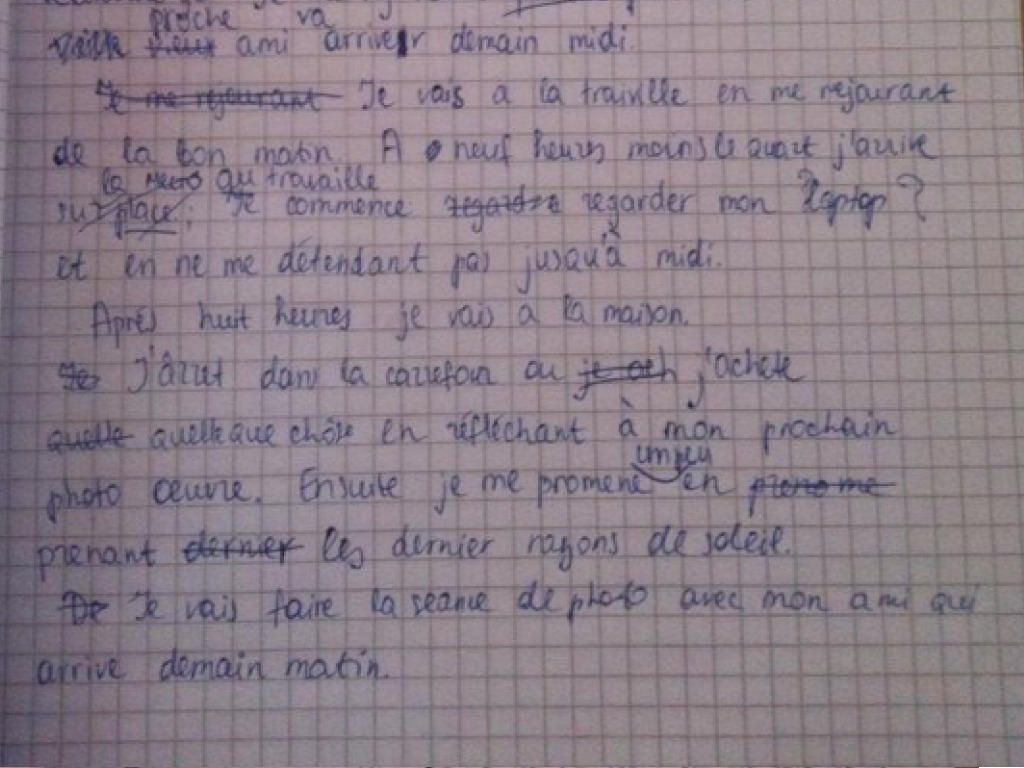 proche va
ami arriver demain midi.
Je me rejourant Je vais a la traivlle en me rejourant
de la bon matin. A neuf heures moins le quart j'arrive
la qu travaille
sur place; Je commence regarder mon laptop ?
et en ne me détendant pas jusqu'à midi.
Après huit heures je vais a la maison.
J'árret dans la carrefour ou je ach j'achete
quelle quelle que chôse en réfléchant à mon prochain
un peu
photo œuvre. Ensuite je me promene en
prenant dernier les dernier rayons de soleil.
De Je vais faire la seance de photo avec mon ami qui
arrive demain matin.